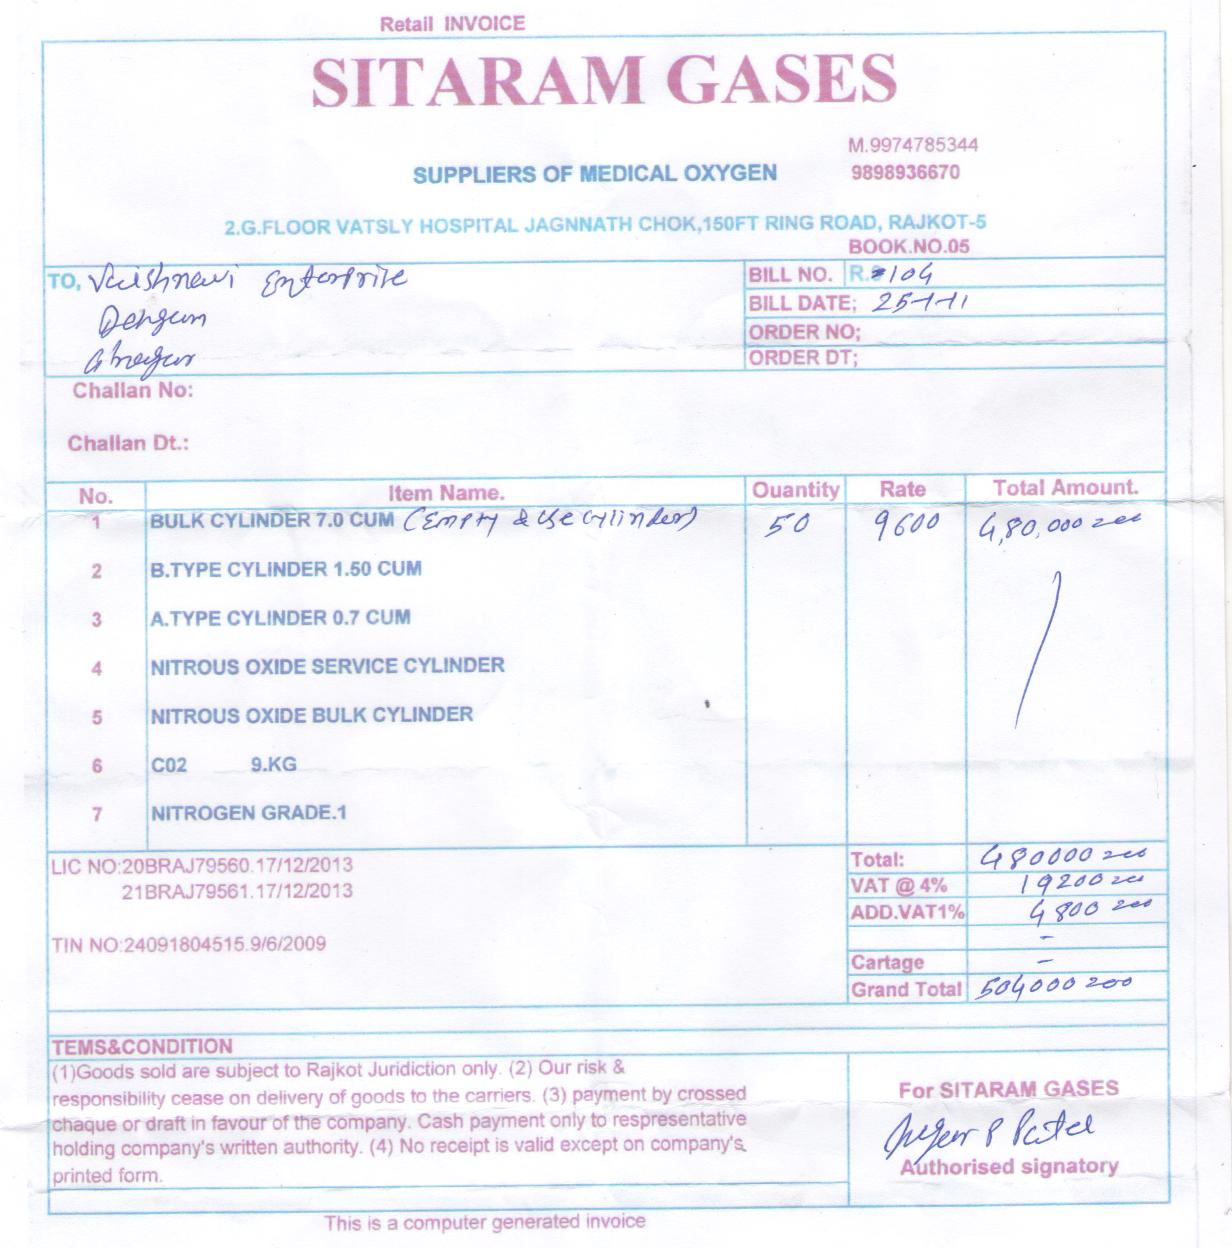 Retail INVOICE
SITARAM GASES
M.9974785344
SUPPLIERS OF MEDICAL OXYGEN
9898936670
2.G.FLOOR VATSLY HOSPITAL JAGNNATH CHOK,150FT RING ROAD, RAJKOT-5
BOOK.NO.05
TO, Vaishnavi Enterprise
BILL NO. R. 104
BILL DATE; 25-1-11
ORDER NO;
ORDER DT;
Challan No:
Challan Dt.:
No. Item Name. Ouantity Rate Total Amount.
1 BULK CYLINDER 7.0 CUM (Empty & Use Cylinder) 50 9600 4,80,000
2 B.TYPE CYLINDER 1.50 CUM
3 A.TYPE CYLINDER 0.7 CUM
4 NITROUS OXIDE SERVICE CYLINDER
5 NITROUS OXIDE BULK CYLINDER
6 C02 9.KG
7 NITROGEN GRADE.1
LIC NO:20BRAJ79560.17/12/2013
21BRAJ79561.17/12/2013
TIN NO:24091804515.9/6/2009
Total: 480000
VAT @ 4% 19200
ADD.VAT1% 4800
-
Cartage -
Grand Total 504000
TEMS&CONDITION
(1)Goods sold are subject to Rajkot Juridiction only. (2) Our risk &
responsibility cease on delivery of goods to the carriers. (3) payment by crossed
chaque or draft in favour of the company. Cash payment only to respresentative
holding company's written authority. (4) No receipt is valid except on company's
printed form.
For SITARAM GASES
P Patel
Authorised signatory
This is a computer generated invoice